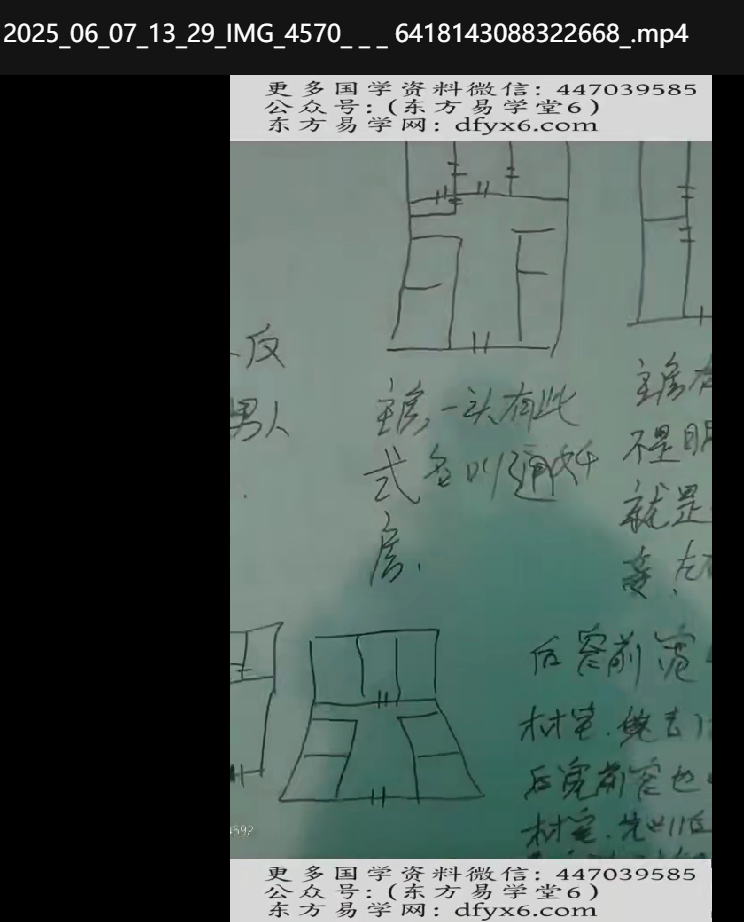 2025_06_07_13_29_IMG_4570_ _ _ 6418143088322668_.mp4
更多国学资料微信：447039585
公众号：(东方易学堂6)
东方易学网：dfyx6.com
反
男人
主房一头有此
式名叫通奸
房.
主房
不是明
就是
妾.左
后窄前宽
材宅.
后宽前窄也
材宅.先
更多国学资料微信：447039585
公众号：(东方易学堂6)
东方易学网：dfyx6.com